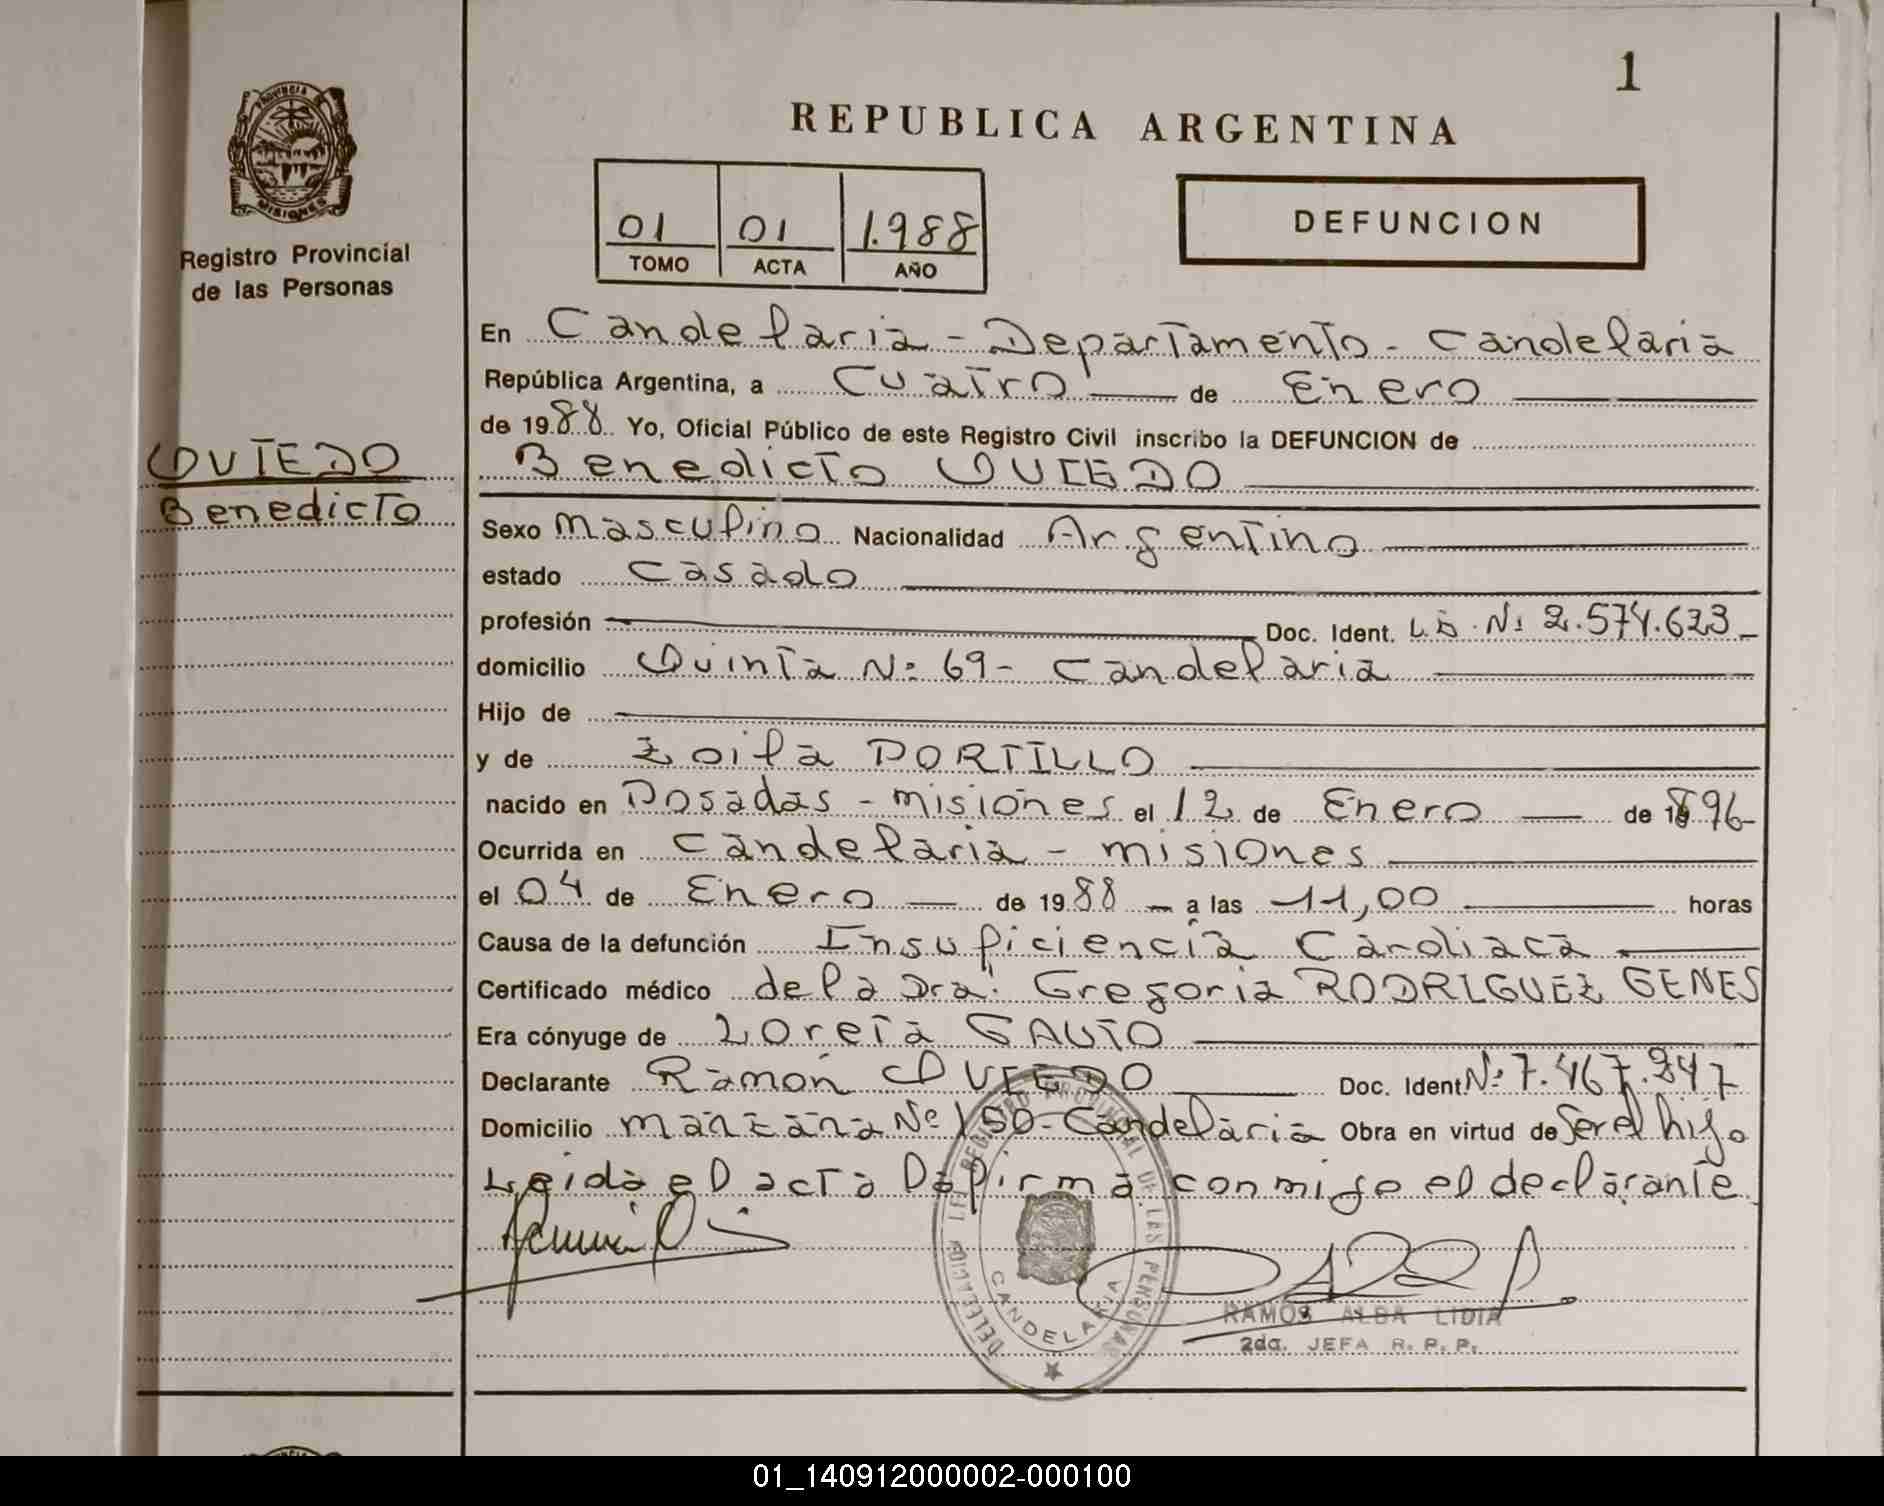 1
REPUBLICA ARGENTINA
PROVINCIA DE
MISIONES
Registro Provincial
de las Personas
01 01 1.988
TOMO ACTA AÑO
DEFUNCION
En Candelaria - Departamento - Candelaria
República Argentina, a Cuatro de Enero
de 1988 Yo, Oficial Público de este Registro Civil inscribo la DEFUNCION de
OVIEDO
Benedicto
Benedicto OVIEDO
Sexo Masculino Nacionalidad Argentino
estado Casado
profesión Doc. Ident. Nº 2.574.623
domicilio Quinta Nº 69 - Candelaria
Hijo de
y de Zoila PORTILLO
nacido en Posadas - Misiones el 12 de Enero de 1896
Ocurrida en Candelaria - Misiones
el 04 de Enero de 1988 a las 11,00 horas
Causa de la defunción Insuficiencia Cardiaca
Certificado médico de la Dra. Gregoria RODRIGUEZ GENES
Era cónyuge de Loreta GAUTO
Declarante Ramón OVIEDO Doc. Ident. Nº 7.467.247
Domicilio Manzana Nº 150 - Candelaria Obra en virtud de Ser el hijo
Leida el acta la firma conmigo el declarante
DELEGACION DEL REGISTRO PROVINCIAL DE LAS PERSONAS
CANDELARIA
RAMOS ALBA LIDIA
2da. JEFA R. P. P.
01_140912000002-000100